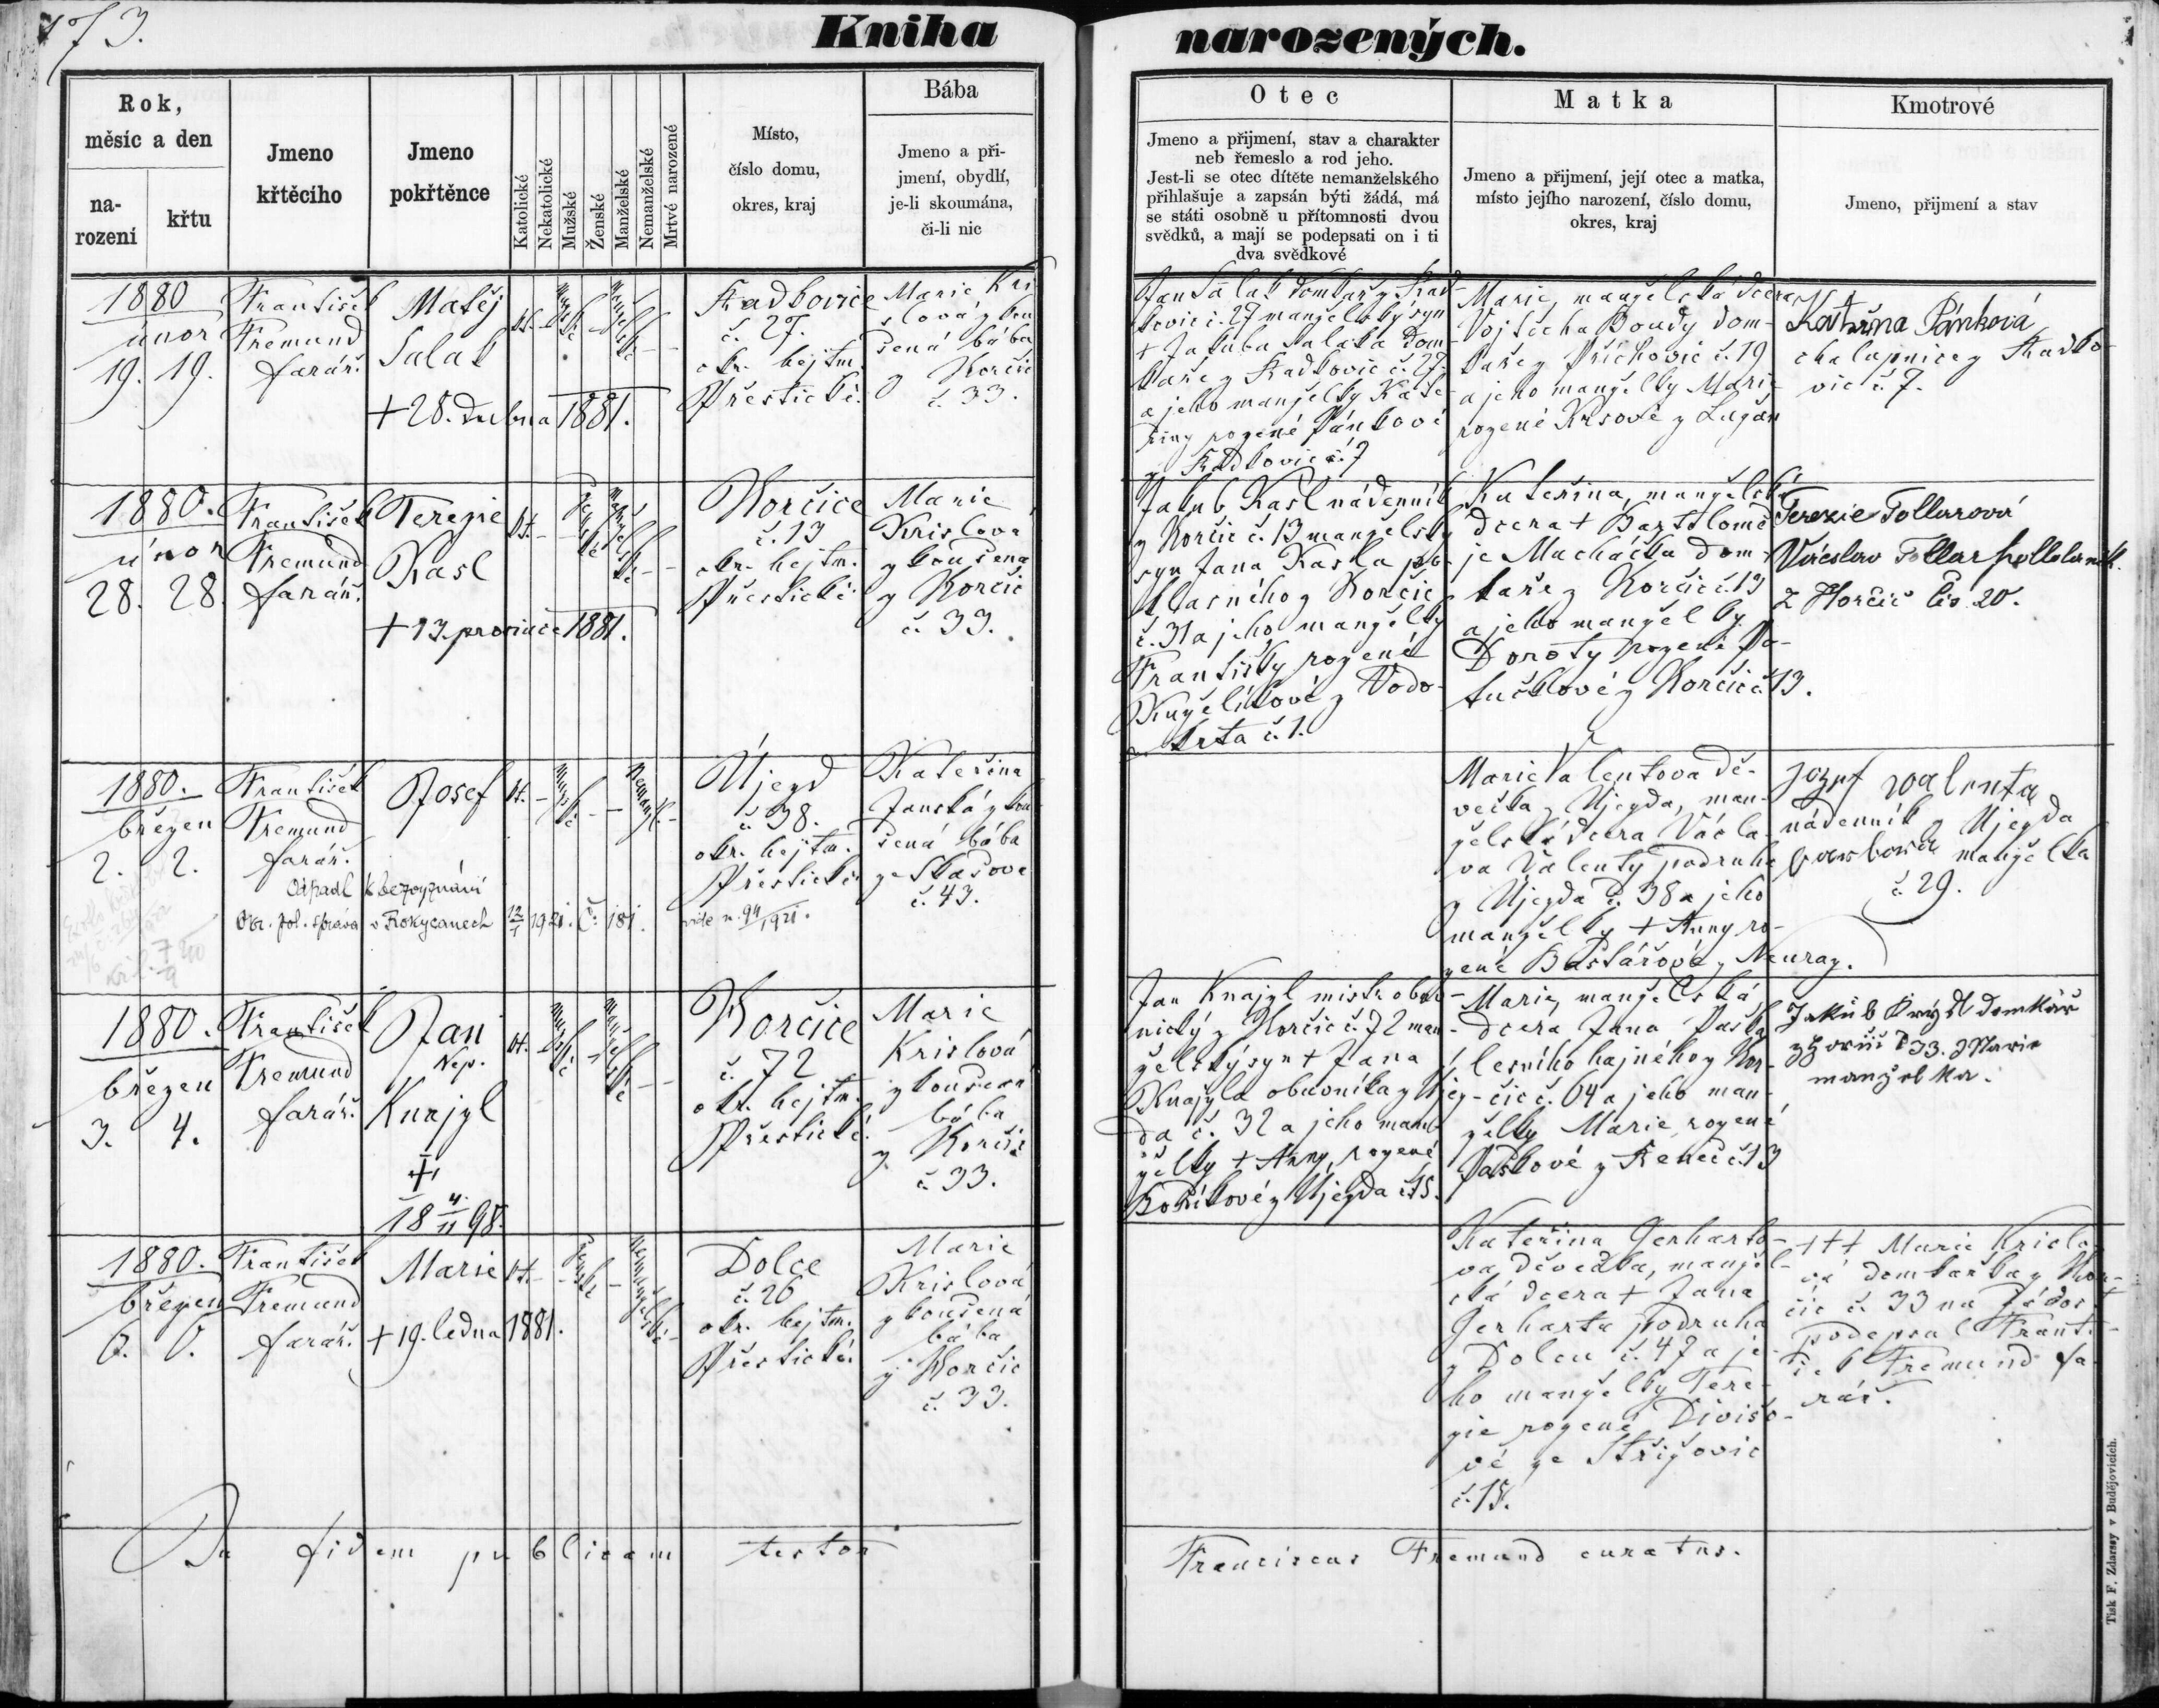 173.
Kniha
narozených.
Rok,
měsíc a den
na-
rození
křtu
Jmeno
křtěcího
Jmeno
pokřtěnce
Katolické
Nekatolické
Mužské
Ženské
Manželské
Nemanželské
Mrtvé narozené
Místo,
číslo domu,
okres, kraj
Bába
Jmeno a při-
jmení, obydlí,
je-li skoumána,
či-li nic
Otec
Jmeno a přijmení, stav a charakter
neb řemeslo a rod jeho.
Jest-li se otec dítěte nemanželského
přihlašuje a zapsán býti žádá, má
se státi osobně u přítomnosti dvou
svědků, a mají se podepsati on i ti
dva svědkové
Matka
Jmeno a přijmení, její otec a matka,
místo jejího narození, číslo domu,
okres, kraj
Kmotrové
Jmeno, přijmení a stav
1880
únor
19. 19.
František
Fremund
farář.
Matěj
Salak
+ 28. dubna 1881.
kt.
Mužské
Manželské
Radkovice
č. 27.
okr. hejtm.
Přestické.
Marie Kri
slová zkou
šená bába
z Horčic
č. 33.
Jan Salak domkář z Rad-
kovic č. 27 manželský syn
+ Jakuba Salaka dom
káře z Radkovic č. 27.
a jeho manželky Kate-
řiny rozené Pánkové
z Radkovic č. 7
Marie, manželská dcera
Vojtěcha Boudy dom-
káře z Příchovic č. 19
a jeho manželky Marie
rozené Krsové z Lužan
Kateřina Pánková
chalupnice z Radko-
vic č. 7.
1880.
únor
28. 28.
František
Fremund
farář.
Terezie
Kasl
+ 13. prosince 1881.
kt.
Ženské
Manželské
Horčice
č. 13
okr. hejtm.
Přestické
Marie
Krislová
zkoušená
z Horčic
č. 33.
Jakub Kasl nádenník
z Horčic č. 13 manželský
syn Jana Kasla
z Horčic
č. 31 a jeho manželky
Františky rozené
Kuželíkové z Vodo-
krta č. 1.
Kateřina, manželská
dcera + Bartolomě
je Macháčka dom-
káře z Horčic č. 13
a jeho manželky
Doroty rozené Pa-
tučkové z Horčic č. 13.
Terezie Tollarová
Václav Tollar
z Horčic čís. 20.
1880.
březen
2. 2.
František
Fremund
farář.
Josef
kt.
Mužské
Nemanž.
Odpadl k bezvyznání
Okr. pol. správa v Rokycanech 12/1 1921. Č. 181.
vide n. 94/1921.
Újezd
č. 38.
okr. hejtm.
Přestické
Kateřina
Janská zkou
šená bába
ze Skašova
č. 43.
Marie Valentova dě-
večka z Újezda, man-
želská dcera Václa-
va Valenty podruha
z Újezda č. 38 a jeho
manželky + Anny ro-
zené Bastářové z Neuraz.
Jozef Walenta
nádenník z Újezda
Barbora manželka
č. 29.
1880.
březen
3. 4.
František
Fremund
farář.
Jan
Nep.
Knajzl
+
18 4/11 98.
kt.
Mužské
Manželské
Horčice
č. 72
okr. hejtm.
Přestické.
Marie
Krislová
zkoušená
bába
z Horčic
č. 33.
Jan Knajzl mistr obuv-
nický z Horčic č. 72 man
želský syn + Jana
Knajzla obuvníka z Újez-
da č. 32 a jeho man-
želky + Anny, rozené
Kotríkové z Újezda č. 15.
Marie, manželská
dcera Jana Pašky
lesního hajného z Hor-
čic č. 64 a jeho man-
želky Marie rozené
Paškové z Renče č. 13
Jakub Krýsl domkář
z Horčic č 33. Marie
manželka.
1880.
březen
6. 6.
František
Fremund
farář.
Marie
+ 19. ledna 1881.
kt.
Ženské
Nemanželské
Dolce
č. 26
okr. hejtm.
Přestické.
Marie
Krislová
zkoušená
bába
z Horčic
č. 33.
Kateřina Gerharto-
va, děvečka, manžel-
ská dcera + Jana
Gerharta podruha
z Dolců č. 47 a je-
ho manželky Tere-
zie rozené Divišo-
vé ze Střížovic
č. 15.
+++ Marie Krislo-
vá domkařka z Hor-
čic č. 33 na žádost
podepsal Franti-
šek Fremund fa-
rář.
In fidem publicam testor
Franciscus Fremund curatus.
Tisk F. Zdarssy v Budějovicích.